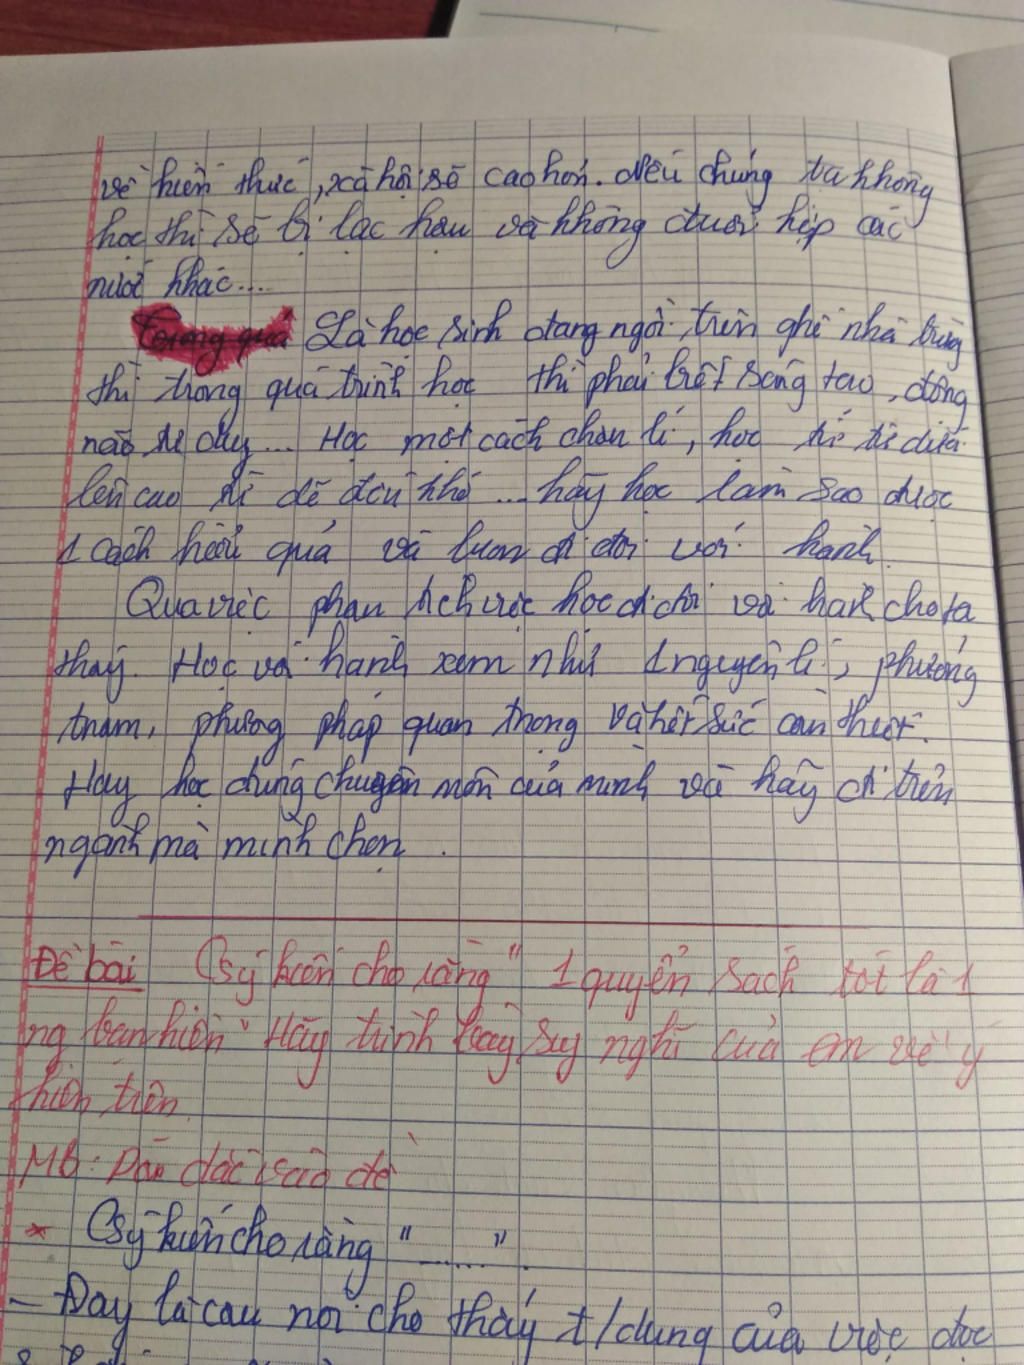 về kiến thức, xã hội sẽ cao hơn. Nếu chúng ta không
học thì sẽ bị lạc hậu và không đuổi kịp các
nước khác...
Trong quá Là học sinh đang ngồi trên ghế nhà trường
thì trong quá trình học thì phải biết sáng tạo, động
não tư duy... Học một cách chân lí, học từ từ
lên cao từ dễ đến khó... hãy học làm sao được
1 cách hiệu quả và luôn đi đôi với hành.
Qua việc phân tích việc học đi đôi với hành cho ta
thấy. Học và hành xem như 1 nguyên lí, phương
trâm, phương pháp quan trọng và hết sức cần thiết.
Hãy học đúng chuyên môn của mình và hãy đi trên
ngành mà mình chọn.
Đề bài Có ý kiến cho rằng " 1 quyển sách tốt là 1
ng bạn hiền" Hãy trình bày suy nghĩ của em về ý
kiến trên.
MB: Dẫn dắt vào đề
* Có ý kiến cho rằng "......".
- Đây là câu nói cho thấy t/dụng của việc đọc